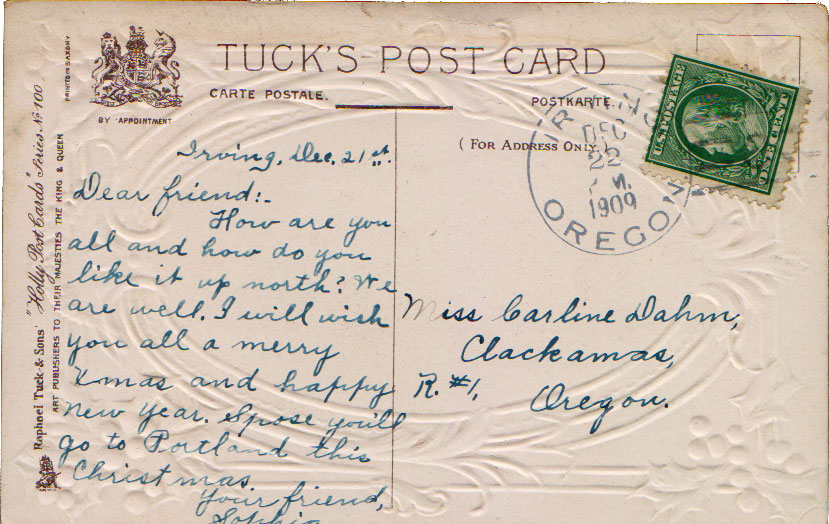 TUCK'S POST CARD
CARTE POSTALE.
POSTKARTE.
BY APPOINTMENT
(FOR ADDRESS ONLY.)
PRINTED IN SAXONY
Raphael Tuck & Sons' "Holly Post Cards" Series No 100
ART PUBLISHERS TO THEIR MAJESTIES THE KING & QUEEN
DEC
22
M.
1909
OREGON
U.S. POSTAGE
Irving, Dec. 21st.
Dear friend:-
How are you
all and how do you
like it up north? We
are well. I will wish
you all a merry
Xmas and happy
New Year. Spose you'll
go to Portland this
Christmas
Your friend,
Sophia
Miss Carline Dahm,
Clackamas,
R. #1,
Oregon.